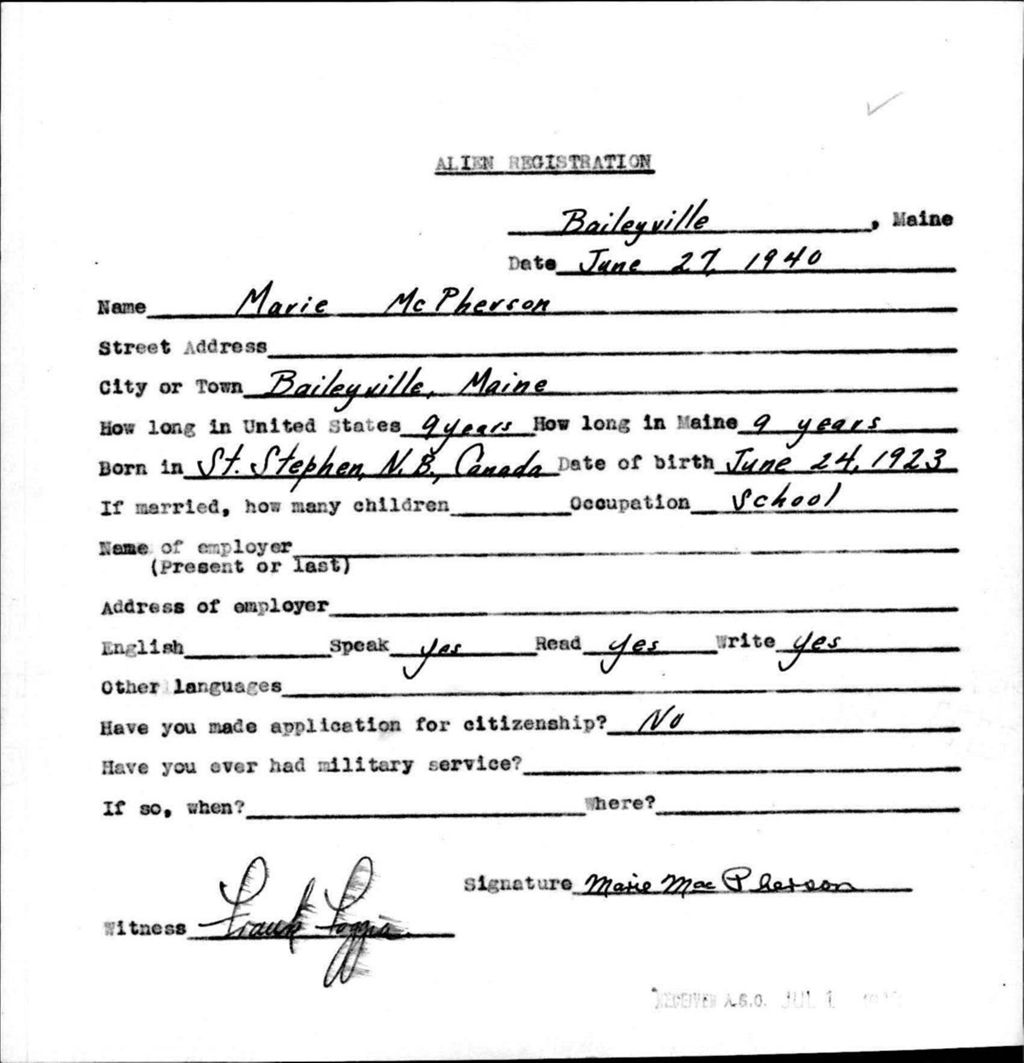 ALIEN REGISTRATION
Baileyville, Maine
Date June 27, 1940
Name Marie McPherson
Street Address
City or Town Baileyville, Maine
How long in United States 9 years How long in Maine 9 years
Born in St. Stephen, N.B., Canada Date of birth June 24, 1923
If married, how many children Occupation School
Name of employer
(Present or last)
Address of employer
English Speak yes Read yes Write yes
Other languages
Have you made application for citizenship? No
Have you ever had military service?
If so, when? Where?
Signature Marie MacPherson
Witness Frank
RECEIVED A.G.O. JUL 1